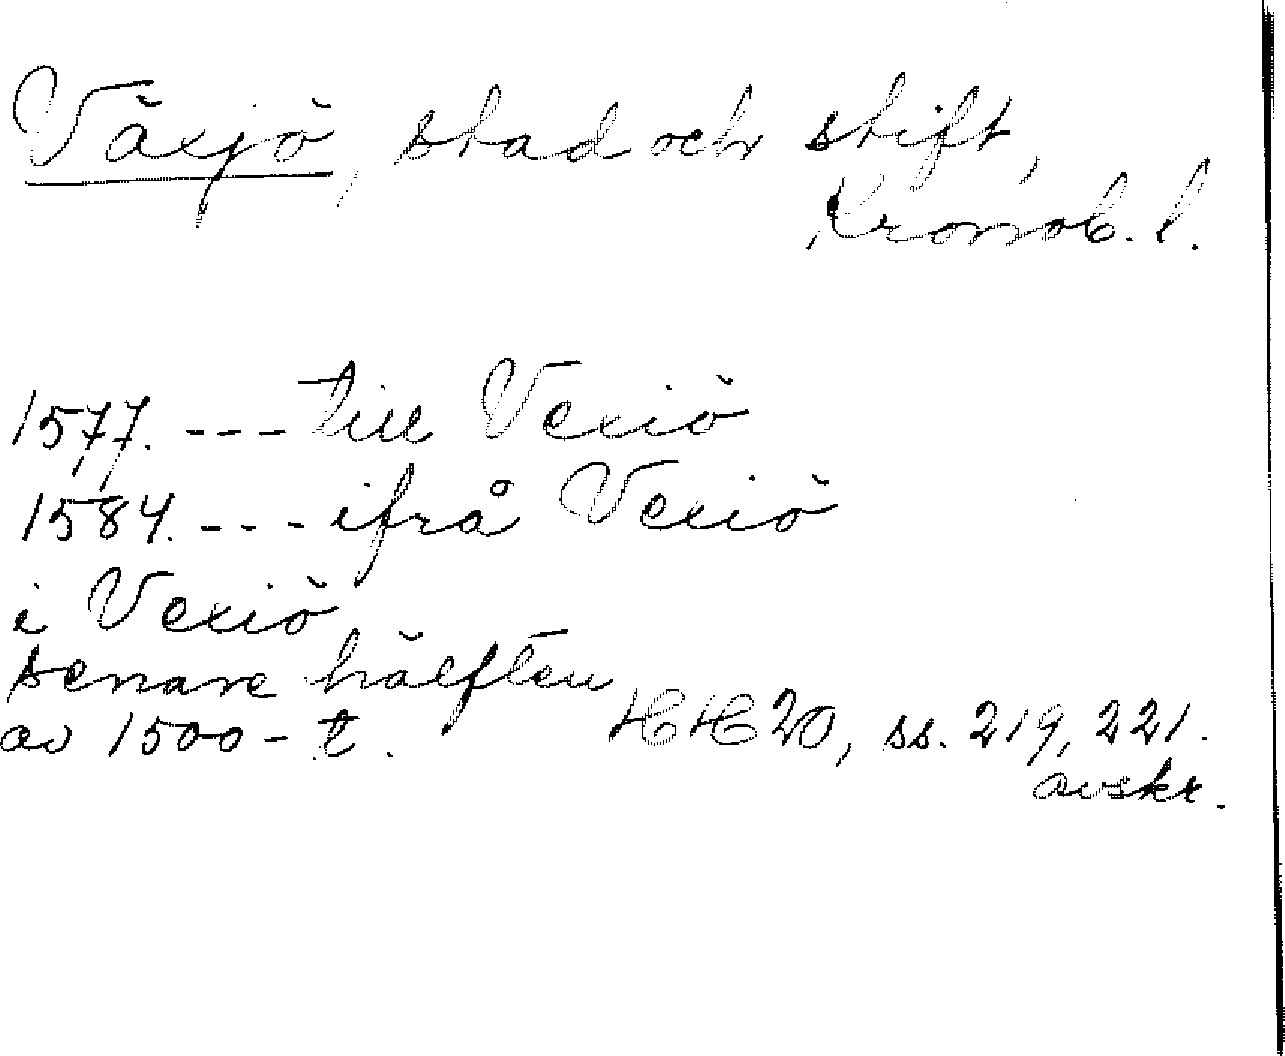 Växjö, stad och stift,
Kronob. l.
1577. --- till Vexiö
1584. --- ifrå Vexiö
i Vexiö
senare hälften
av 1500-t. HH 20, ss. 219, 221.
avskr.